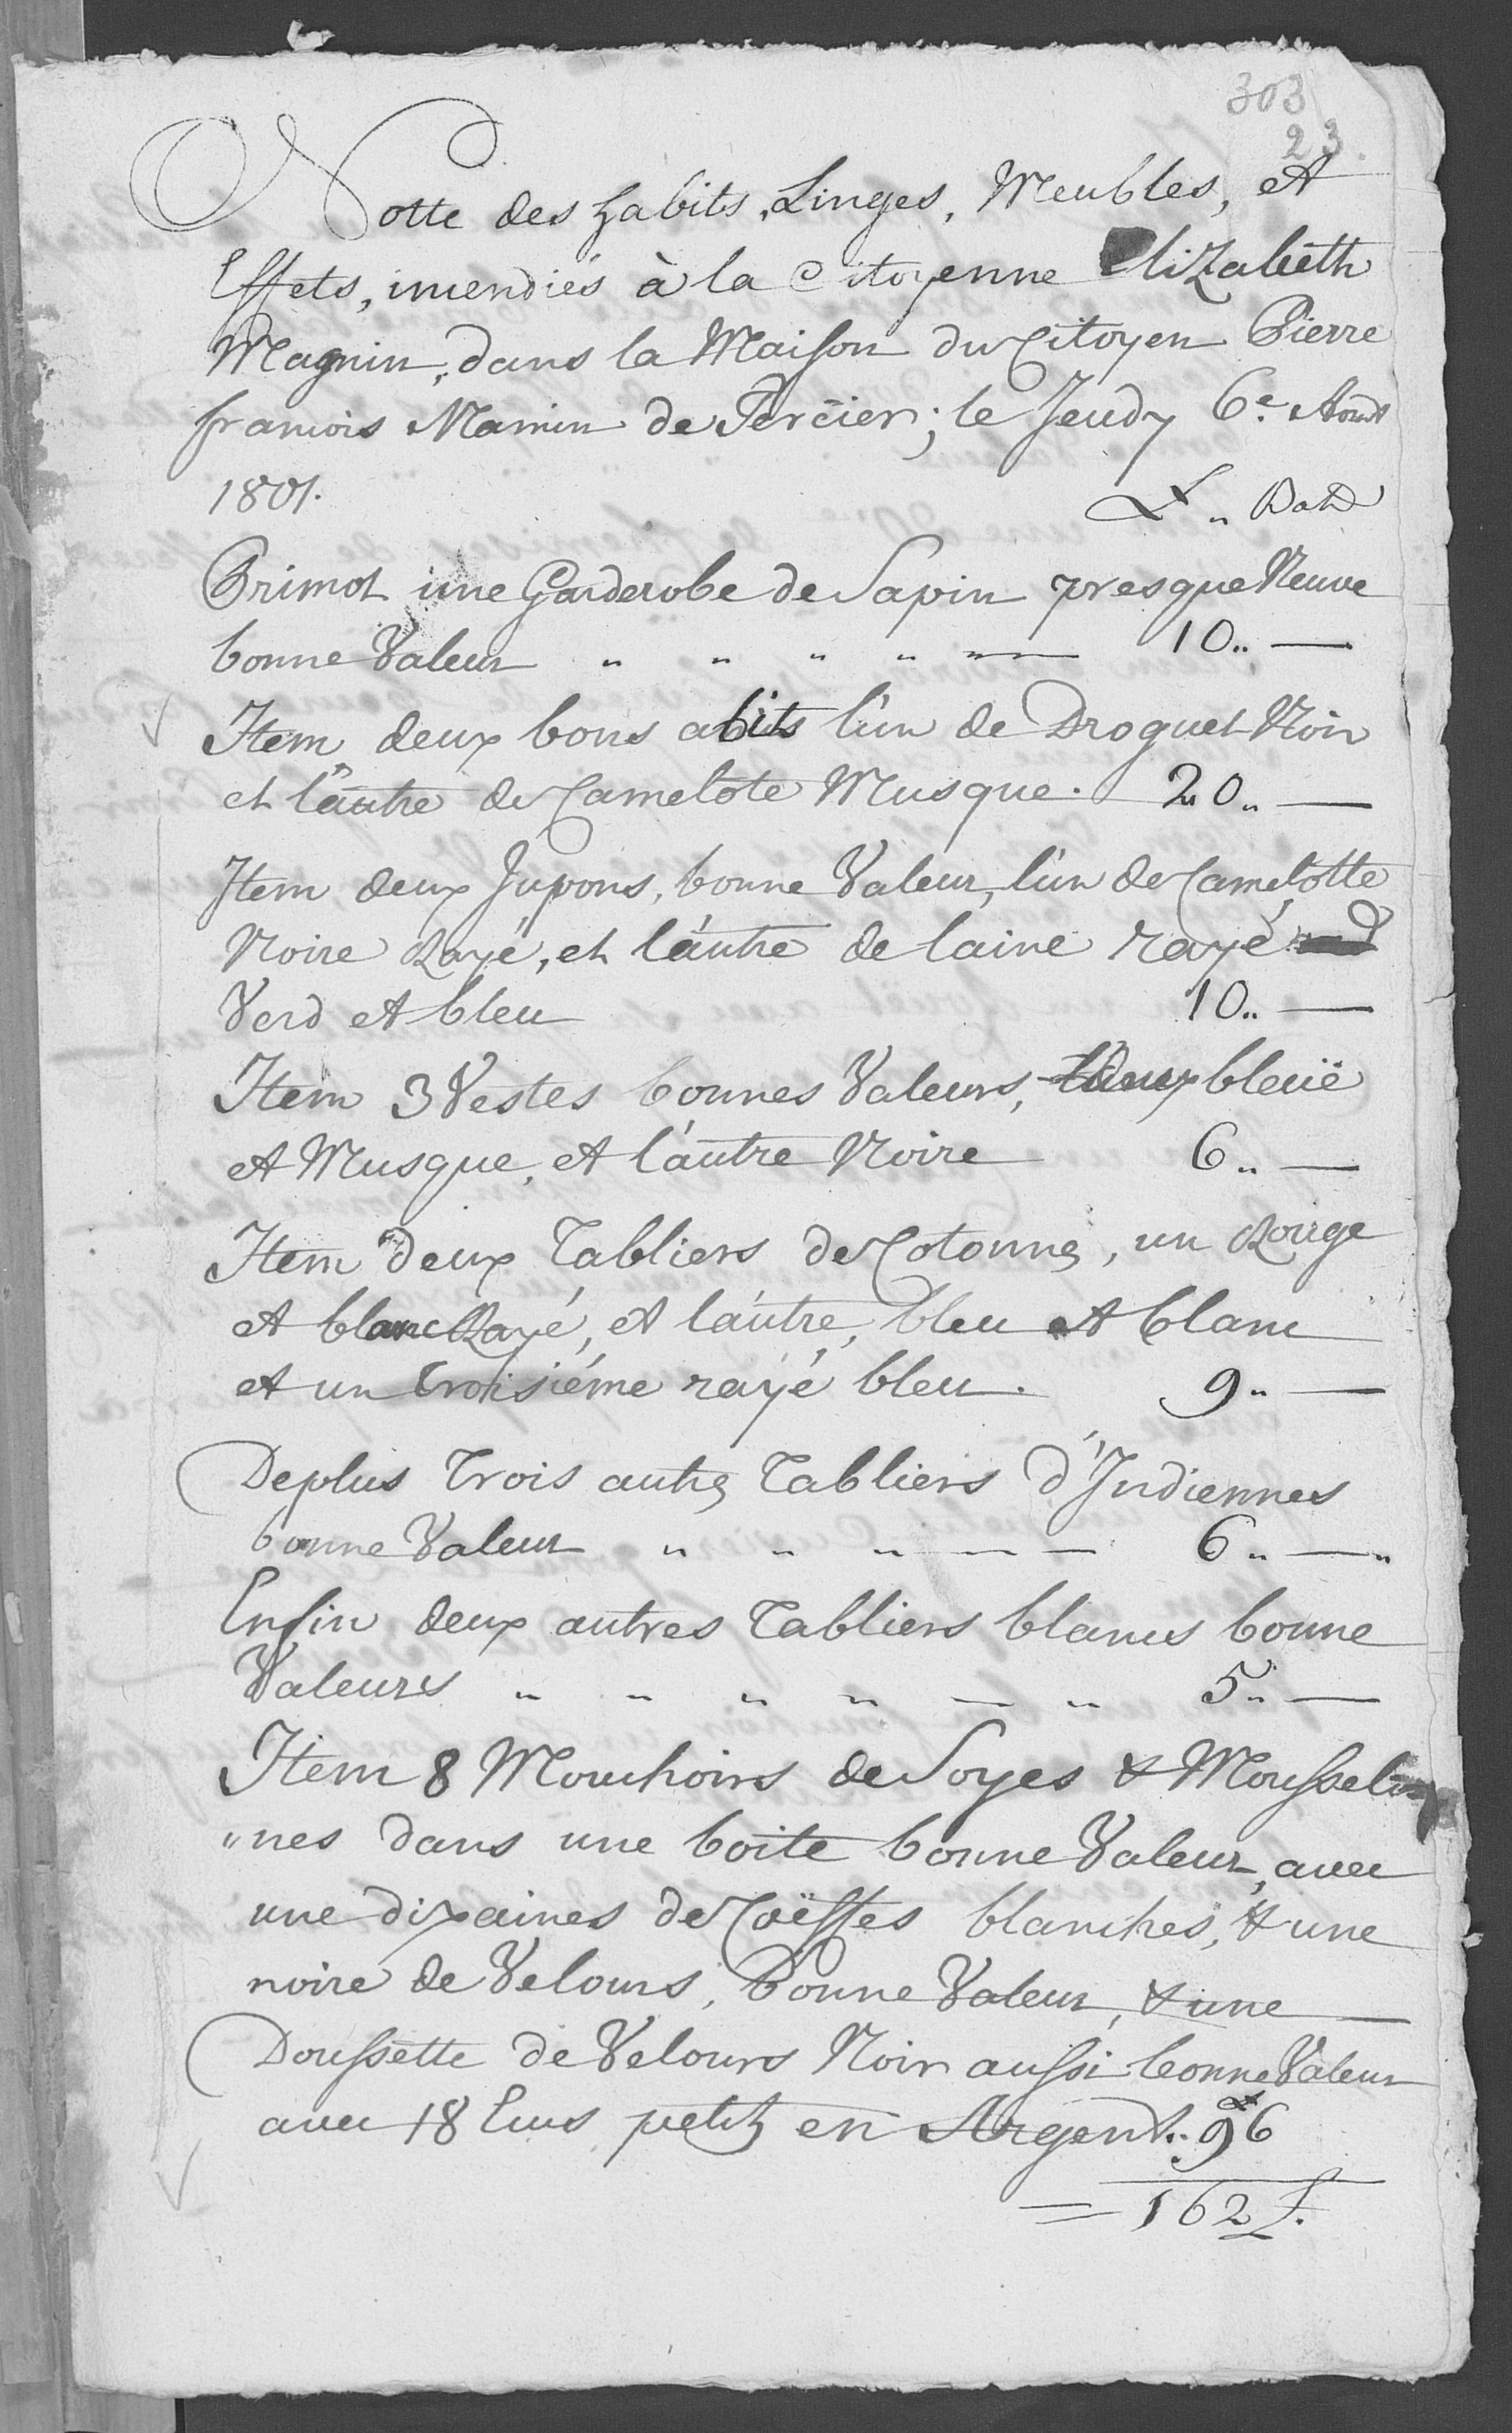 303
23.
Notte des habits, Linges, Meubles, et
Effets, incendiés à la Citoyenne Elizabeth
Magnin, dans la Maison du Citoyen Pierre
francois Mamin de Percier; le Jeudy 6e. Aoust
1801.
L „ Batz
Primot une Garderobe de Sapin presque Neuve
bonne Valeur „ „ „ „ — 10.. —
Item, deux bons abits l'un de Droguet Noir
et l'autre de Camelote Musque. 20.. —
Item deux Jupons, bonne Valeur, l'un de Camelotte
Noire Rayé, et l'autre de laine rayé
Verd et bleu 10.. —
Item 3 Vestes bonnes Valeurs, deux bleuë
et Musque, et l'autre Noire 6.. —
Item deux Tabliers de Cotonne, un Rouge
et blanc Rayé, et l'autre, bleu et blanc
et un troisiéme rayé bleu. 9.. —
Deplus Trois autres Tabliers d'Indiennes
bonne Valeur „ „ „ — — 6.. —
Enfin deux autres Tabliers blancs bonne
Valeurs „ „ „ „ — „ 5.. —
Item 8 Mouchoirs de Soyes & Mousseli
"nes dans une boite bonne Valeur, avec
une dixaines de Coëffes blanches, & une
noire de Velours, bonne Valeur, & une
Doussette de Velours Noir aussi bonne Valeur
avec 18 Ecus petits en Argent.. 96
= 162 L.